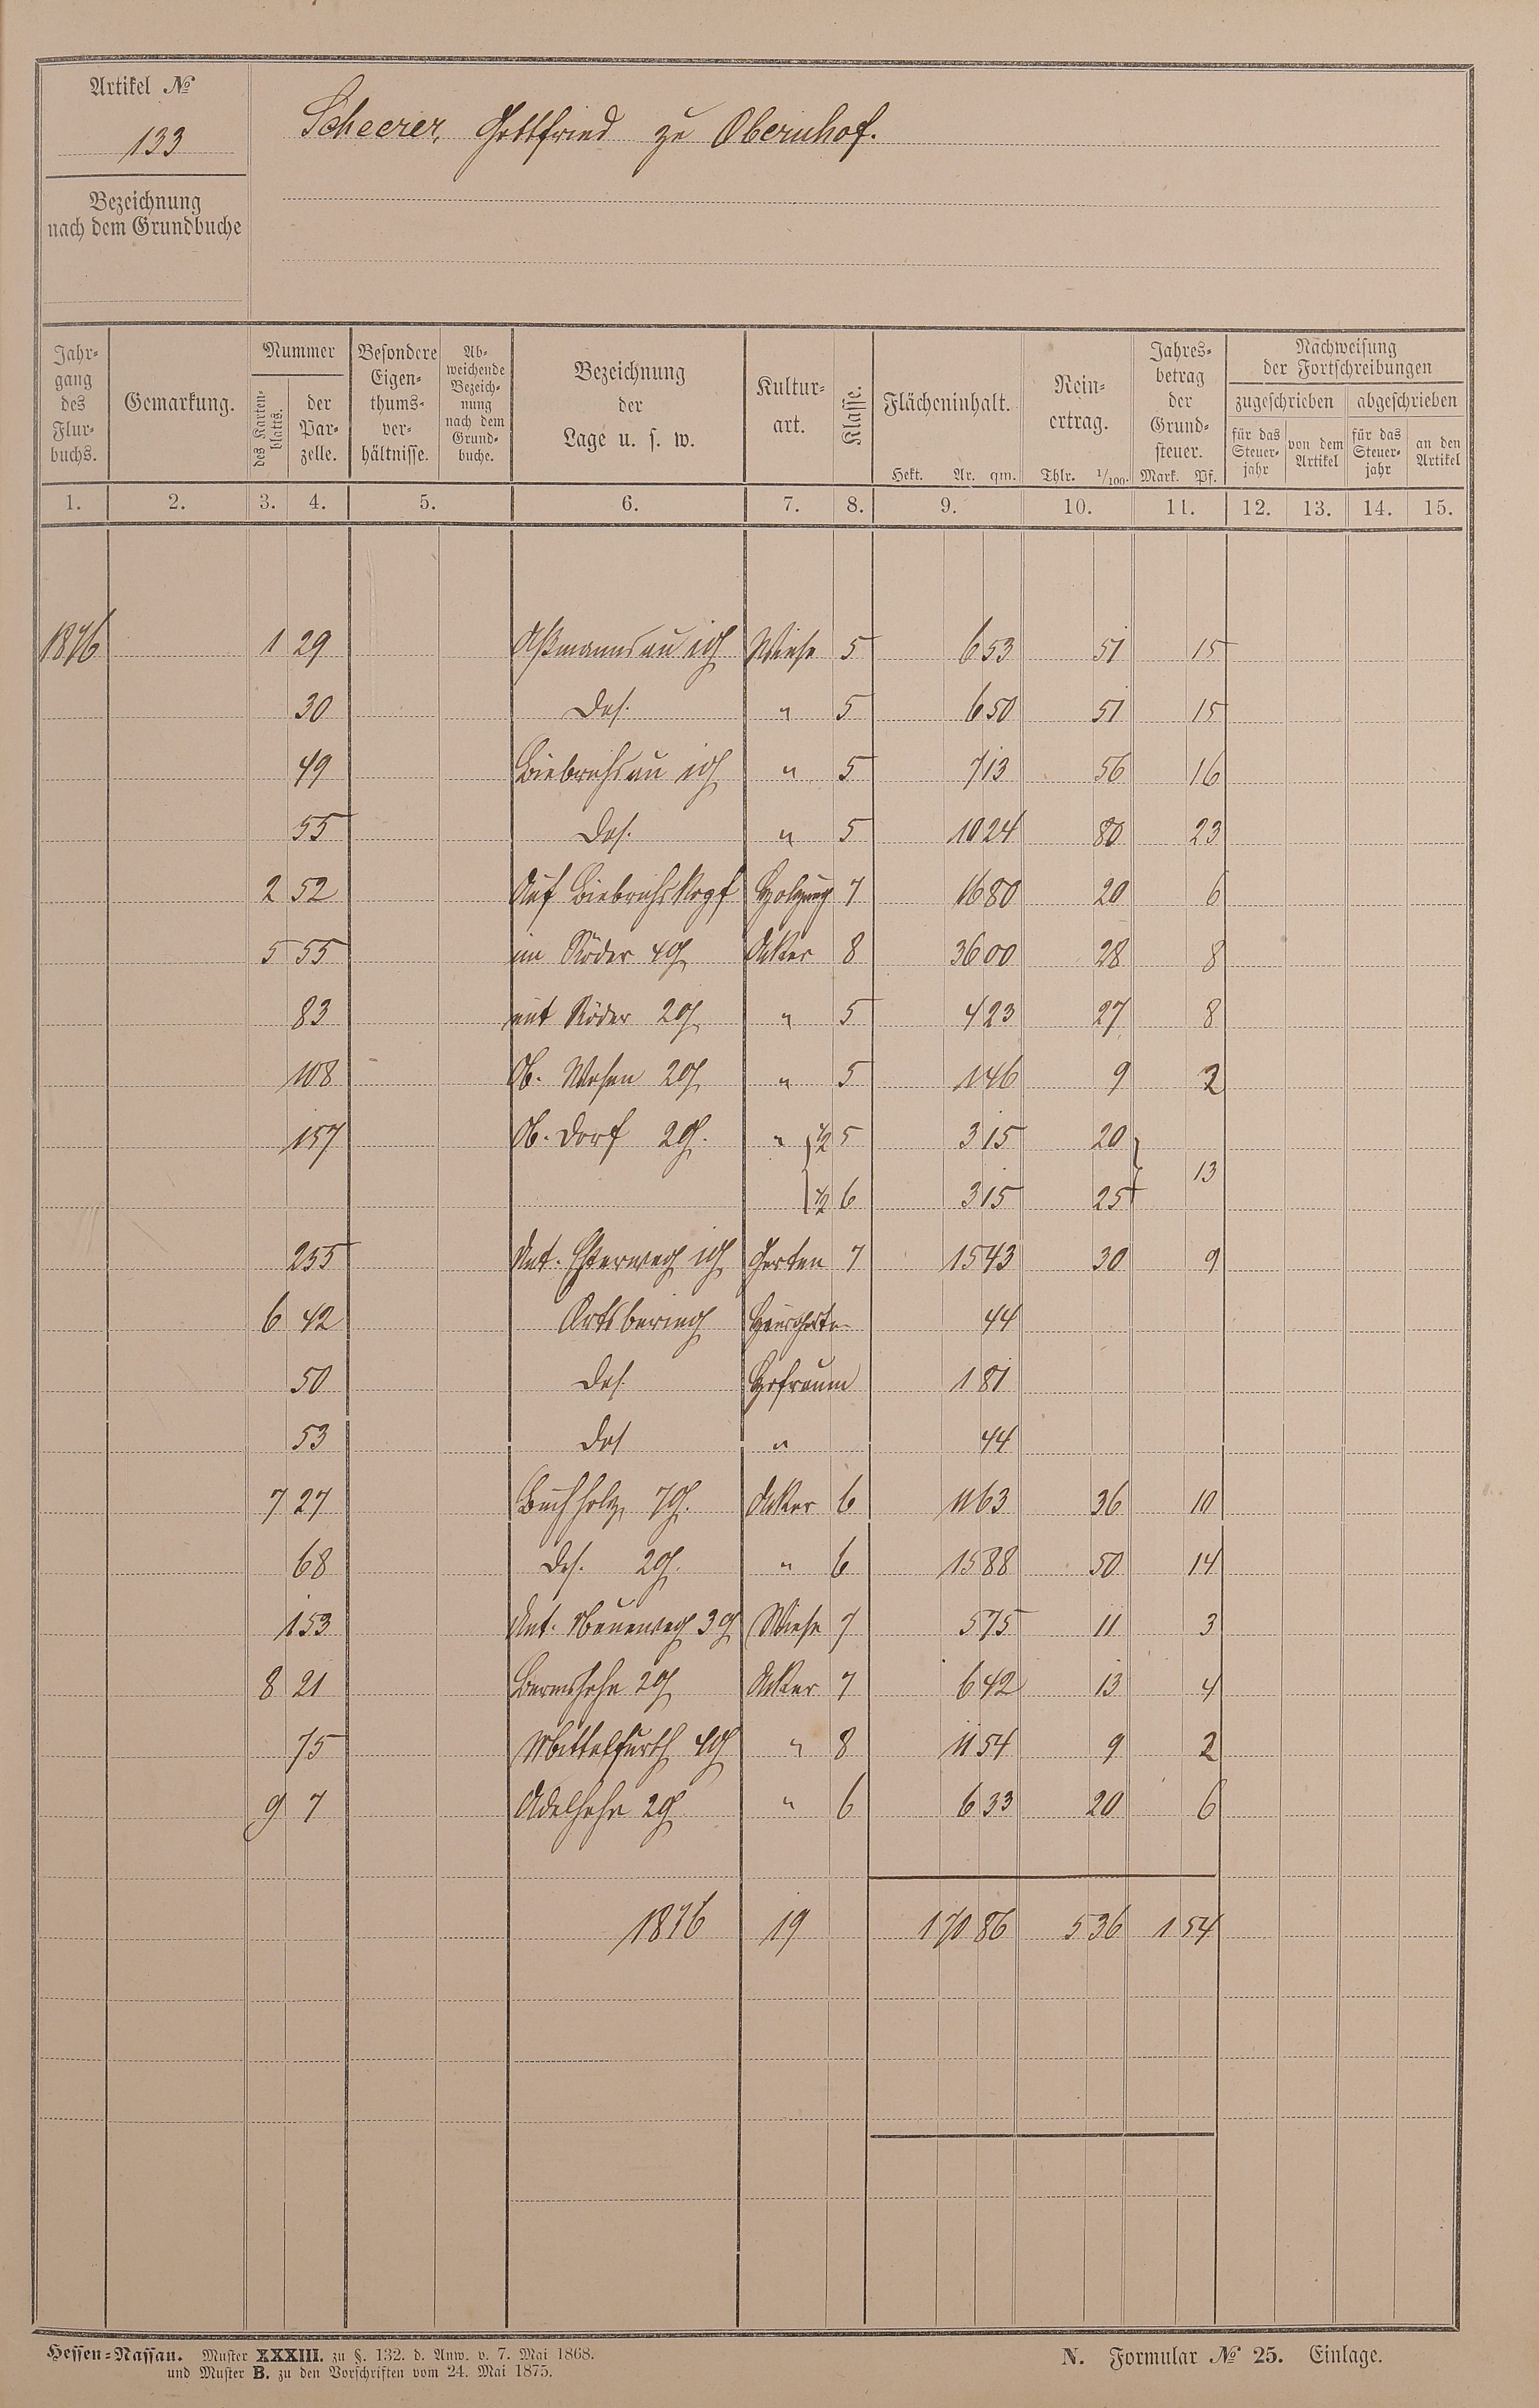 Artikel №
133
Scheerer, Gottfried zu Obernhof.
Bezeichnung
nach dem Grundbuche
Jahr-
gang
des
Flur-
buchs.
Gemarkung.
Nummer
des Karten-
blatts.
der
Par-
zelle.
Besondere
Eigen-
thums-
ver-
hältnisse.
Ab-
weichende
Bezeich-
nung
nach dem
Grund-
buche.
Bezeichnung
der
Lage u. s. w.
Kultur-
art.
Klasse.
Flächeninhalt.
Hekt. Ar. qm.
Rein-
ertrag.
Thlr. 1/100.
Jahres-
betrag
der
Grund-
steuer.
Mark. Pf.
Nachweisung
der Fortschreibungen
zugeschrieben abgeschrieben
für das
Steuer-
jahr
von dem
Artikel
für das
Steuer-
jahr
an den
Artikel
1. 2. 3. 4. 5. 6. 7. 8. 9. 10. 11. 12. 13. 14. 15.
1876 1 29 Aßmannsau Wiese 5 6 53 51 15
30 Das. " 5 6 50 51 15
49 Biebrichsau " 5 7 13 56 16
55 Das. " 5 10 24 80 23
2 52 Auf Biebrichskopf Holzung 7 16 80 20 6
5 55 im Röder 4 Acker 8 36 00 28 8
83 unt Röder 2 " 5 4 23 27 8
108 Ob. 2 " 5 1 46 9 2
157 Ob. Dorf 2 " 1/2 5 3 15 20
13
1/2 6 3 15 25
255 Unt. Garten 7 15 43 30 9
6 42 Ortsbering 44
50 Das. Hofraum 1 81
53 Das " 44
7 27 Buchholz 7 Acker 6 11 63 36 10
68 Das. 2 " 6 15 88 50 14
153 Unt. Neueweg 3 Wiese 7 5 75 11 3
8 21 2 Acker 7 6 42 13 4
75 Mittelfurth 4 " 8 11 54 9 2
9 7 2 " 6 6 33 20 6
1876 19 1 70 86 5 36 1 54
Hessen-Nassau. Muster XXXIII. zu §. 132. d. Anw. v. 7. Mai 1868.
und Muster B. zu den Vorschriften vom 24. Mai 1875.
N. Formular № 25. Einlage.